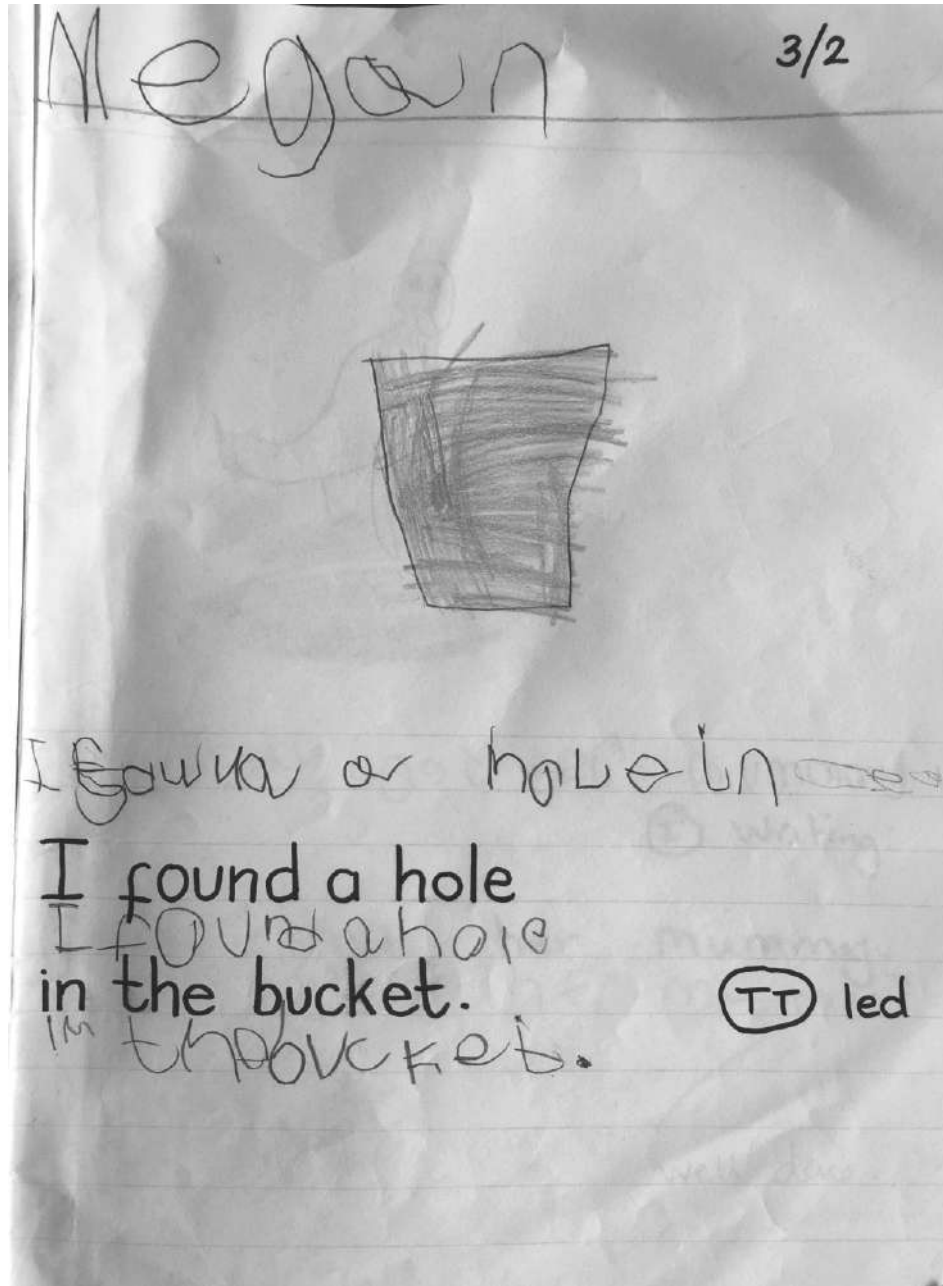 Megan 3/2
I a hole in
I found a hole
I found a hole
in the bucket. TT led
in the bucket.